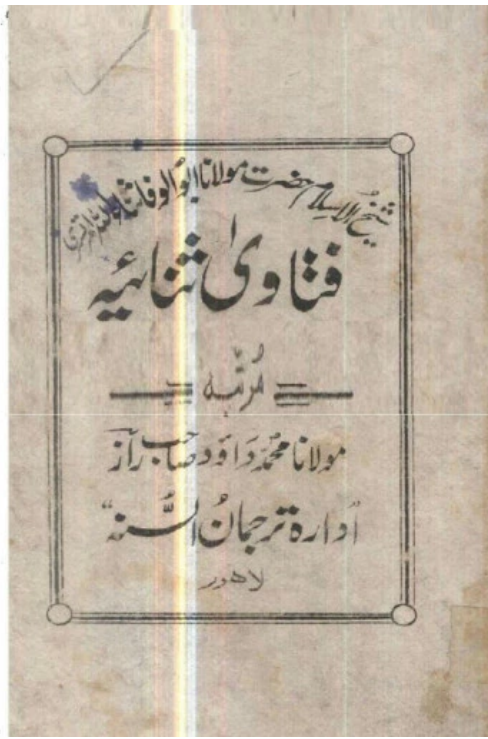 شیخ الاسلام حضرت مولانا ابو الوفا ثناء اللہ امرتسری
فتاویٰ ثنائیہ
مُرتّبہ
مولانا محمد داؤد صاحب راز
ادارہ ترجمانُ السُّنہ
لاھور